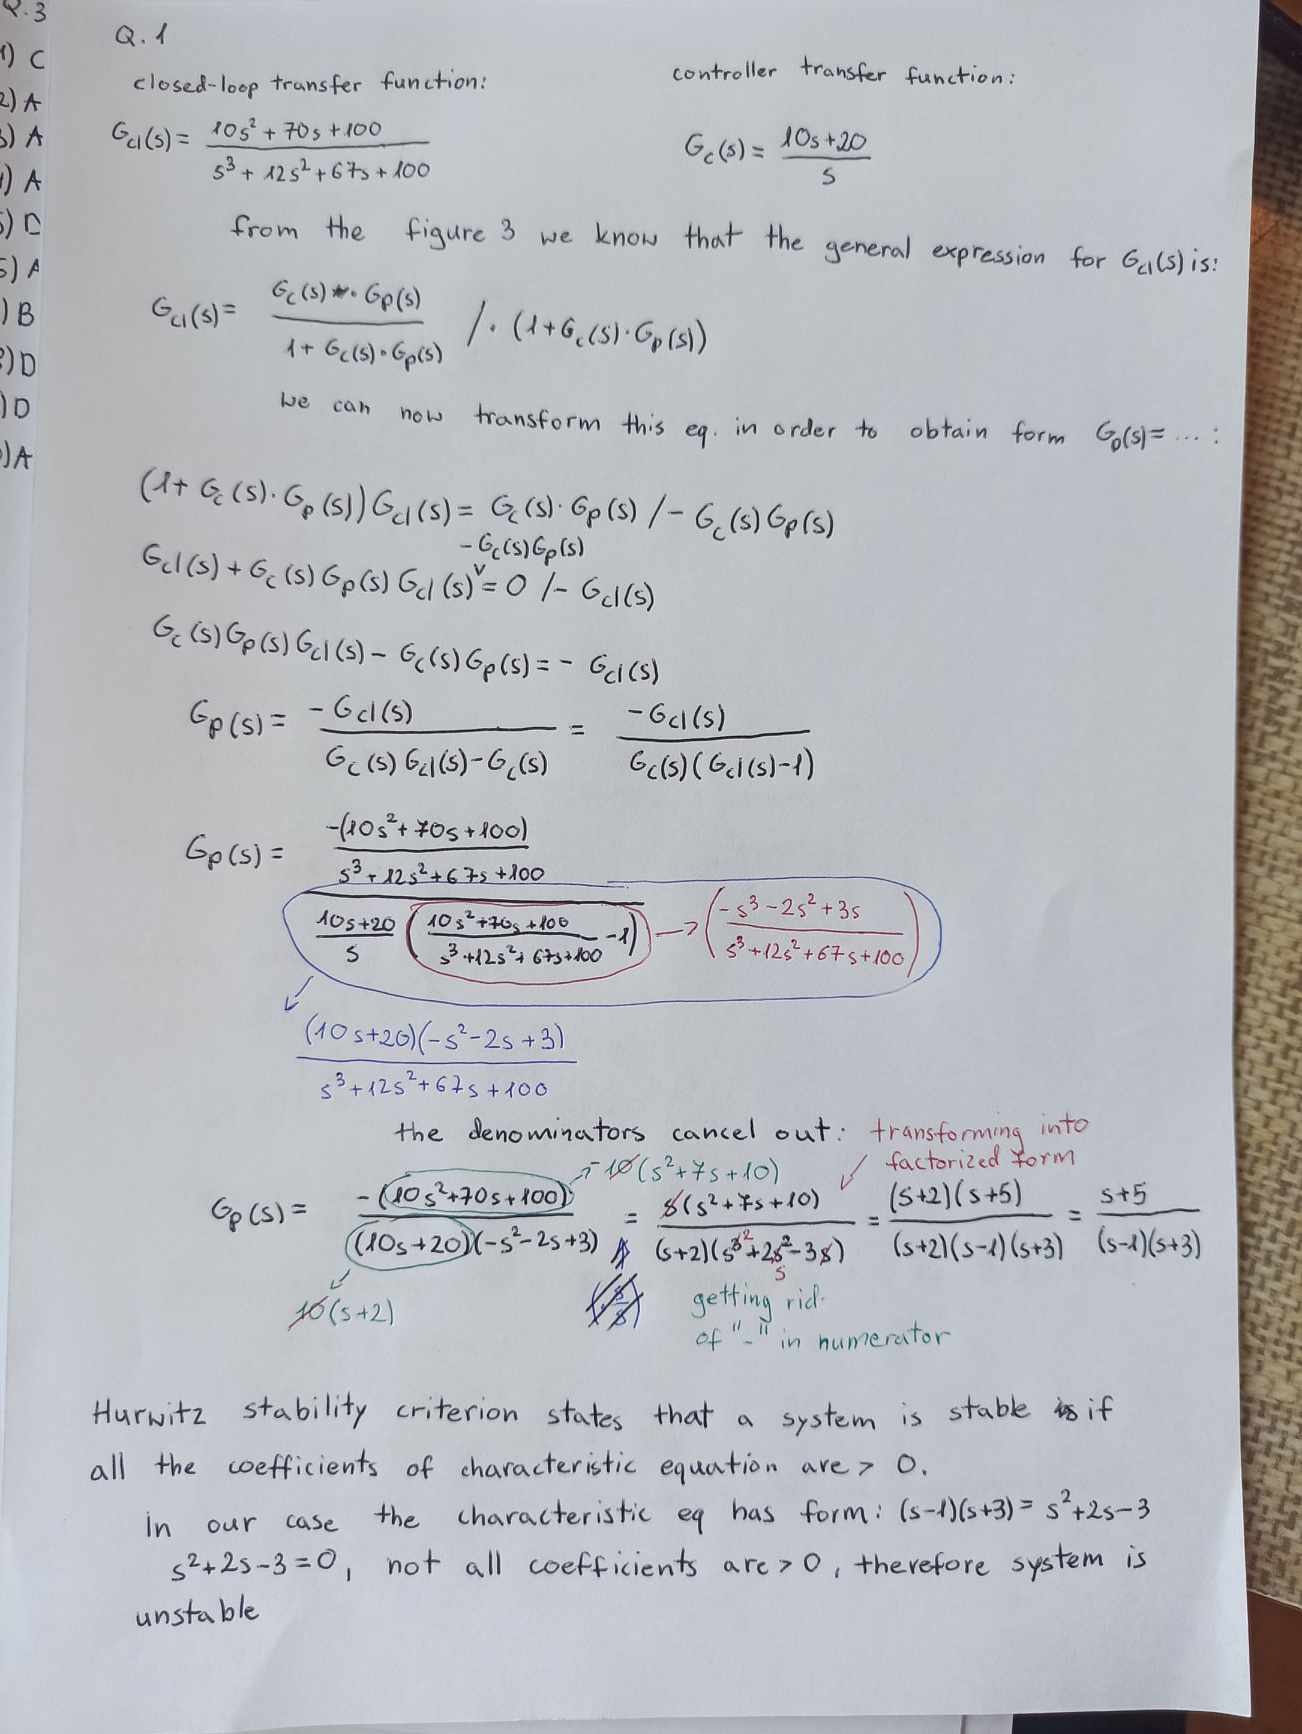 Q.3
1) C
2) A
3) A
) A
5) D
5) A
) B
) D
) D
) A
Q.1
closed-loop transfer function:
controller transfer function:
Gcl(s) = (10s² + 70s + 100) / (s³ + 12s² + 67s + 100)
Gc(s) = (10s+20) / s
from the figure 3 we know that the general expression for Gcl(s) is:
Gcl(s) = (Gc(s) · Gp(s)) / (1 + Gc(s) · Gp(s)) / · (1 + Gc(s) · Gp(s))
we can now transform this eq. in order to obtain form Gp(s) = ... :
(1 + Gc(s) · Gp(s)) Gcl(s) = Gc(s) · Gp(s) / - Gc(s) Gp(s)
- Gc(s) Gp(s)
Gcl(s) + Gc(s) Gp(s) Gcl(s) ∨ = 0 / - Gcl(s)
Gc(s) Gp(s) Gcl(s) - Gc(s) Gp(s) = - Gcl(s)
Gp(s) = (-Gcl(s)) / (Gc(s) Gcl(s) - Gc(s)) = (-Gcl(s)) / (Gc(s) (Gcl(s) - 1))
Gp(s) = (-(10s² + 70s + 100) / (s³ + 12s² + 67s + 100)) / ((10s+20) / s ((10s² + 70s + 100) / (s³ + 12s² + 67s + 100) - 1)) → ((-s³ - 2s² + 3s) / (s³ + 12s² + 67s + 100))
(10s+20)(-s² - 2s + 3) / (s³ + 12s² + 67s + 100)
the denominators cancel out: transforming into
factorized form
-10(s² + 7s + 10)
Gp(s) = (-(10s² + 70s + 100)) / ((10s+20)(-s² - 2s + 3)) = (s(s² + 7s + 10)) / ((s+2)(s³ + 2s² - 3s)) = ((s+2)(s+5)) / ((s+2)(s-1)(s+3)) = (s+5) / ((s-1)(s+3))
2
s
10(s+2)
getting rid
of "-" in numerator
Hurwitz stability criterion states that a system is stable if
all the coefficients of characteristic equation are > 0.
in our case the characteristic eq has form: (s-1)(s+3) = s² + 2s - 3
s² + 2s - 3 = 0, not all coefficients are > 0, therefore system is
unstable